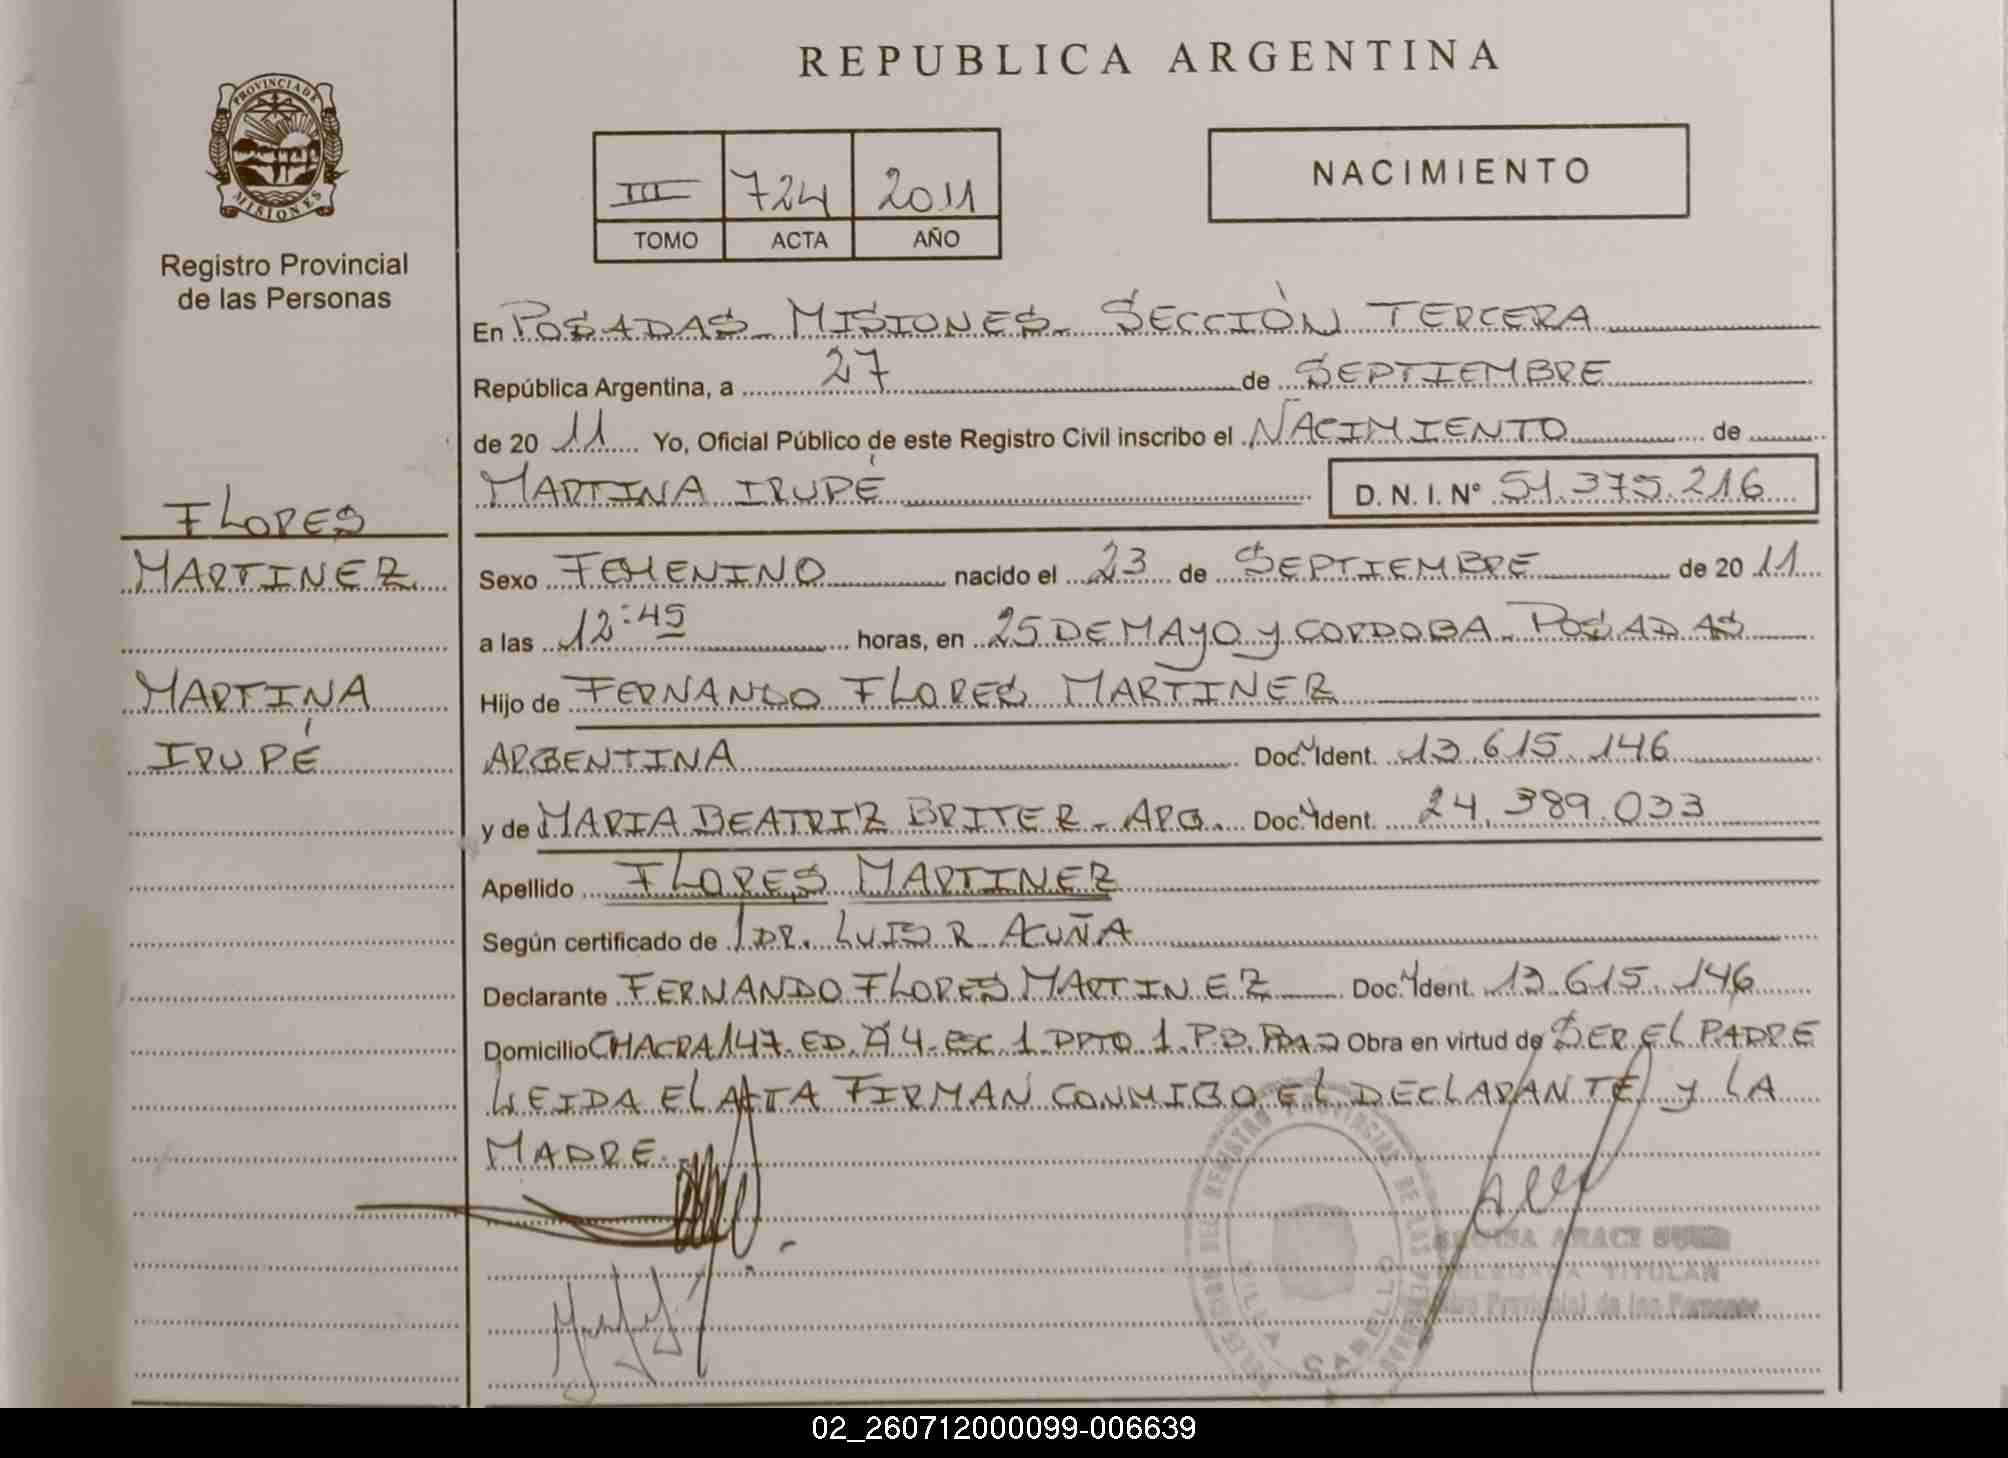 REPUBLICA ARGENTINA
PROVINCIA DE
MISIONES
Registro Provincial
de las Personas
III 724 2011
TOMO ACTA AÑO
NACIMIENTO
En POSADAS - MISIONES - SECCIÓN TERCERA
República Argentina, a 27 de SEPTIEMBRE
de 2011 Yo, Oficial Público de este Registro Civil inscribo el NACIMIENTO de
MARTINA IRUPÉ D. N. I. Nº 51.375.216
FLORES
MARTINEZ
MARTINA
IRUPÉ
Sexo FEMENINO nacido el 23 de SEPTIEMBRE de 2011
a las 12:45 horas, en 25 DE MAYO Y CORDOBA - POSADAS
Hijo de FERNANDO FLORES MARTINEZ
ARGENTINA Doc. Ident. 13.615.146
y de MARIA BEATRIZ BRITEZ - ARG. Doc. Ident. 24.389.033
Apellido FLORES MARTINEZ
Según certificado de DR. LUIS R ACUÑA
Declarante FERNANDO FLORES MARTINEZ Doc. Ident. 13.615.146
Domicilio CHACRA 147 - ED. A 4 - ESC 1 DPTO 1 - P.B. Obra en virtud de SER EL PADRE
LEIDA EL ACTA FIRMAN CONMIGO EL DECLARANTE Y LA
MADRE.
REGISTRO PROVINCIAL DE LAS
VILLA CABELLO
ARACE
DELEGADA TITULAR
Provincial de las Personas
02_260712000099-006639